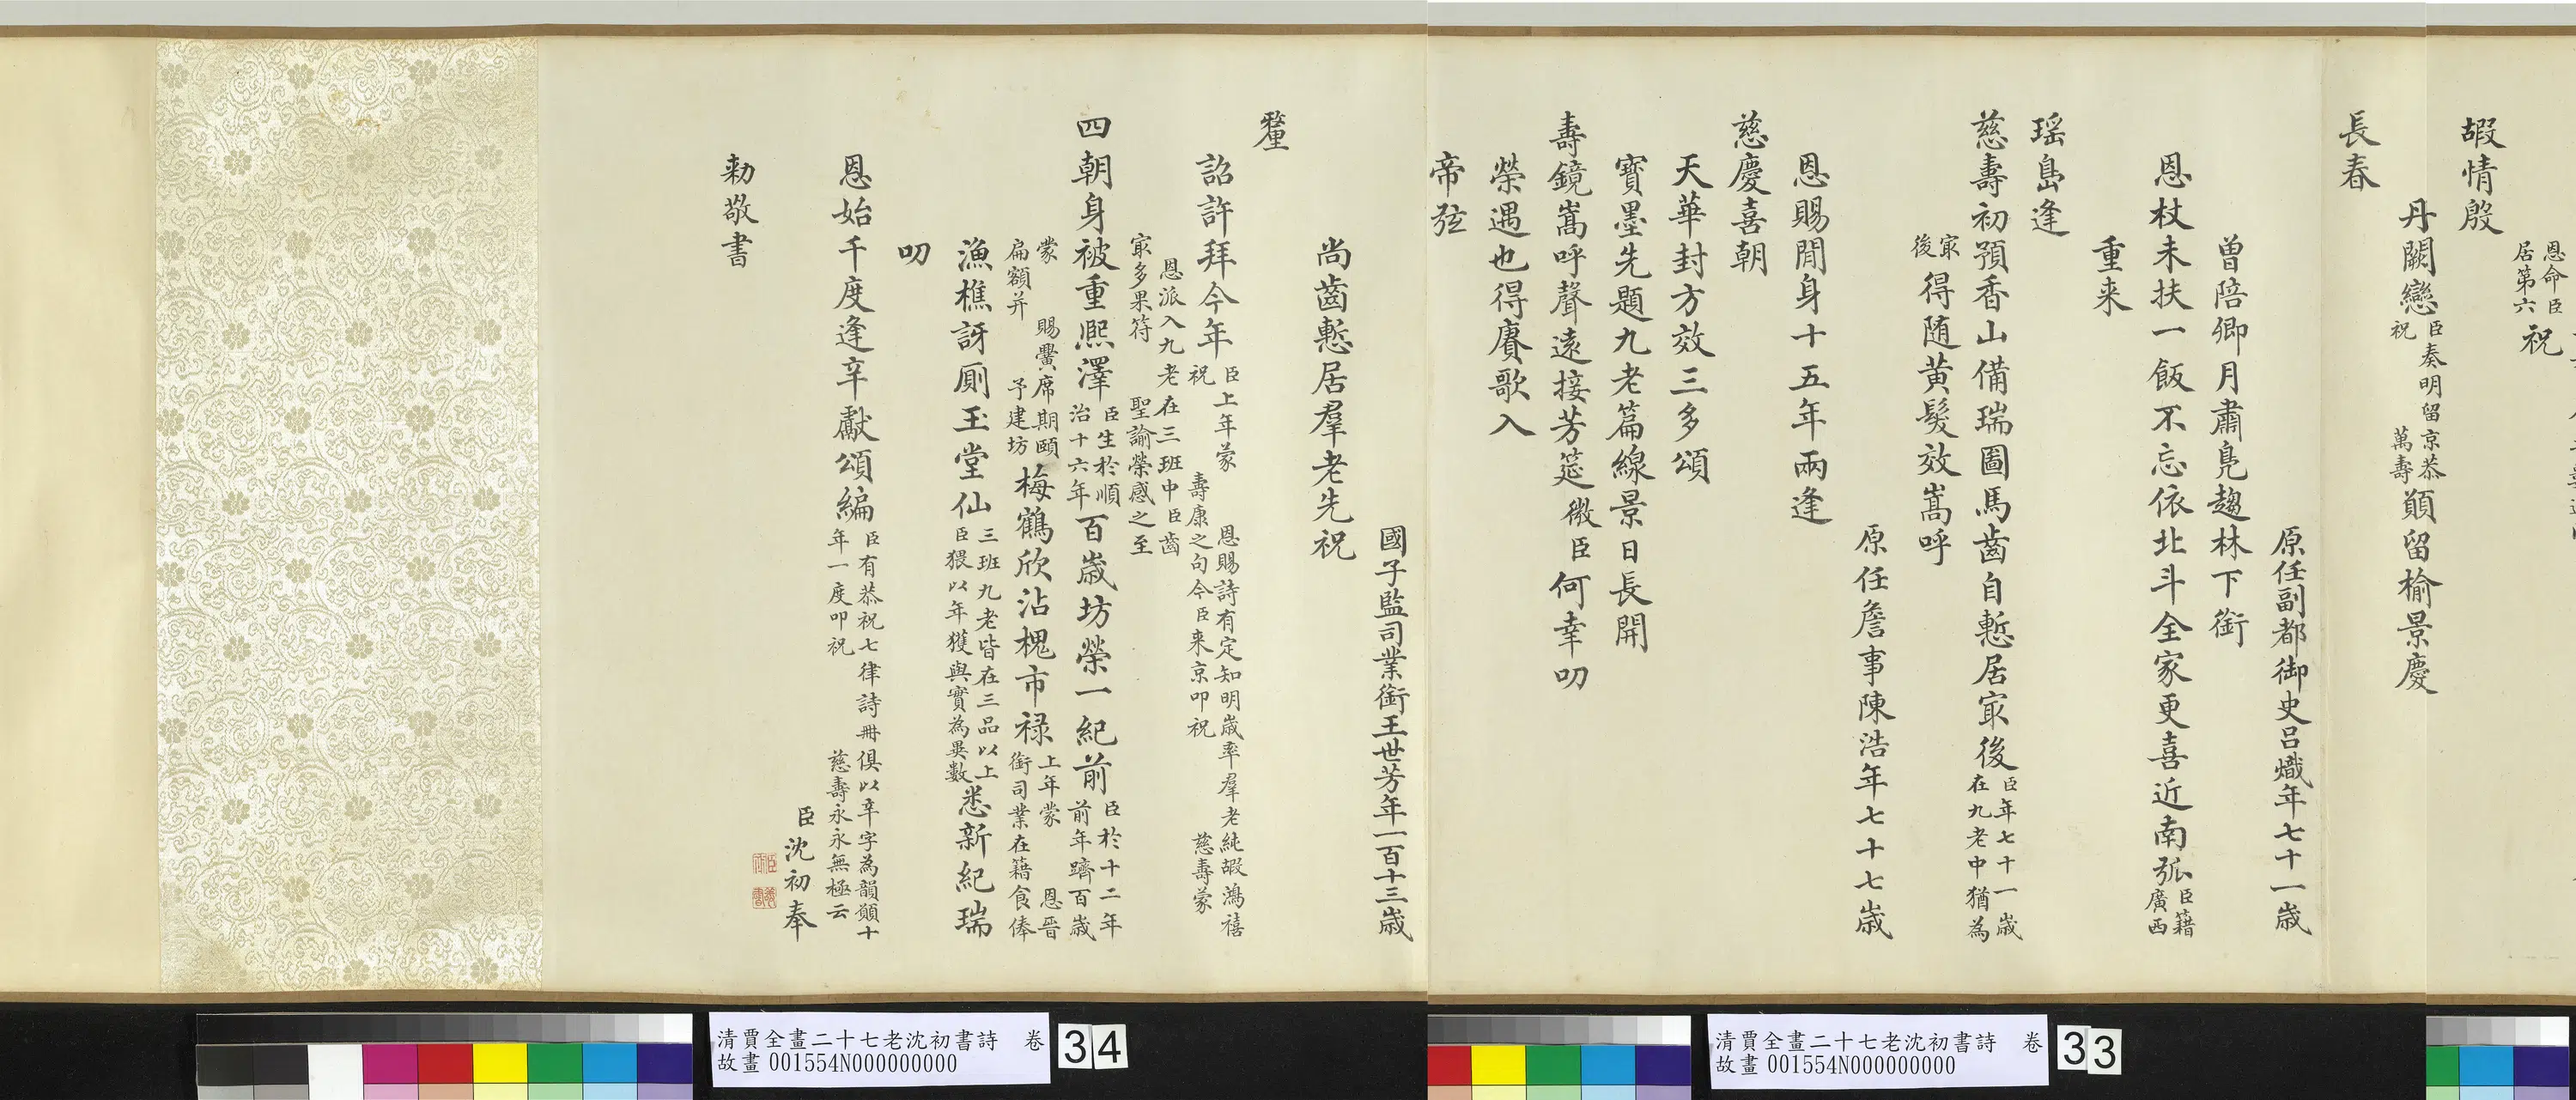 恩命臣
居第六
祝
嘏情殷
丹闕戀
臣奏明留京恭
祝 萬壽
願留榆景慶
長春
原任副都御史呂熾年七十一歲
曾陪卿月肅鳧趨林下銜
恩杖未扶一飯不忘依北斗全家更喜近南弧
臣籍
廣西
重来
瑶島逢
慈壽初預香山備瑞圖馬齒自慙居冣後
臣年七十一歲
在九老中猶為
冣
後
得随黄髮效嵩呼
原任詹事陳浩年七十七歲
恩賜閒身十五年兩逢
慈慶喜朝
天華封方效三多頌
寶墨先題九老篇線景日長開
壽鏡嵩呼聲遠接芳筵微臣何幸叨
榮遇也得賡歌入
帝弦
國子監司業銜王世芳年一百十三歲
尚齒慙居羣老先祝
釐
詔許拜今年
臣上年蒙 恩賜詩有定知明歲率羣老純嘏鴻禧
祝 壽康之句今臣来京叩祝 慈壽蒙
恩派入九老在三班中臣齒
冣多果符 聖諭榮感之至
四朝身被重熙澤
臣生於順
治十六年
百歲坊榮一紀前
臣於十二年
前年躋百歲
蒙 賜黌席期頤
扁額并 予建坊
梅鶴欣沾槐市禄
上年蒙 恩晉
銜司業在籍食俸
漁樵訝厠玉堂仙
三班九老皆在三品以上
臣猥以年獲與實為異數
悉新紀瑞
叨
恩始千度逢辛獻頌編
臣有恭祝七律詩冊俱以辛字為韻願十
年一度叩祝 慈壽永永無極云
臣沈初奉
勅敬書
清賈全畫二十七老沈初書詩 卷
故畫 001554N000000000
34
清賈全畫二十七老沈初書詩 卷
故畫 001554N000000000
33